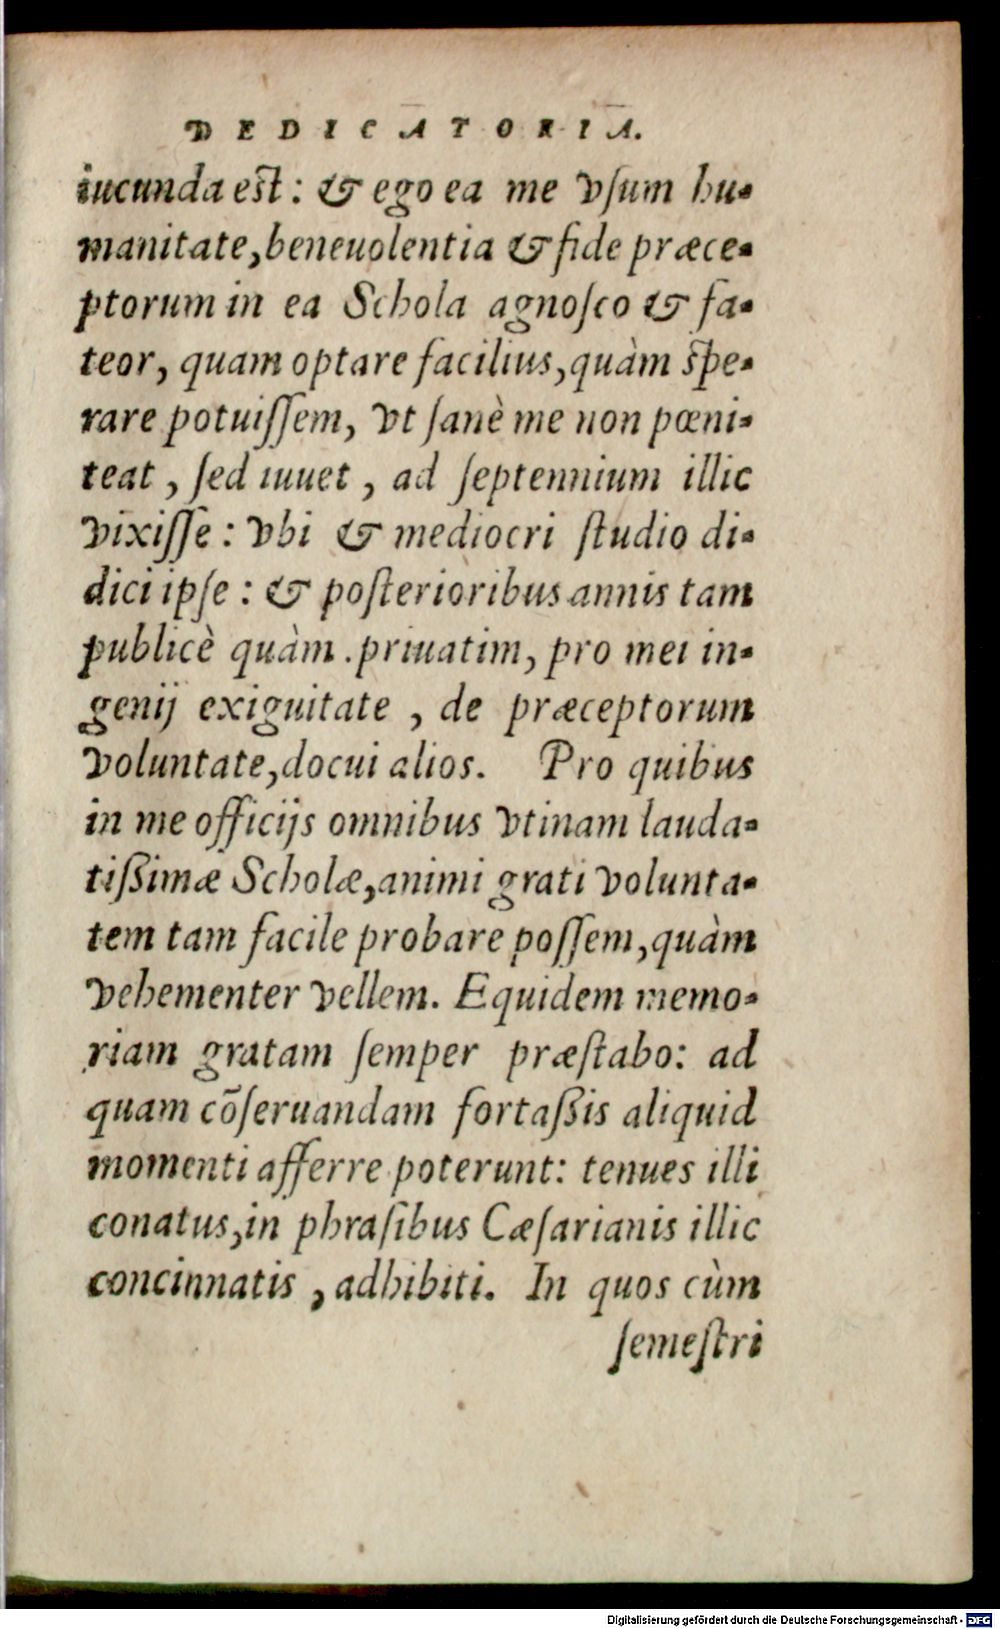 DEDICATORIA.
iucunda est: & ego ea me vſum hu-
manitate, beneuolentia & fide præce-
ptorum in ea Schola agnoſco & fa-
teor, quam optare facilius, quàm ſpe-
rare potuiſſem, vt ſanè me non pœni-
teat, ſed iuuet, ad ſeptennium illic
vixiſſe: vbi & mediocri ſtudio di-
dici ipſe: & poſterioribus annis tam
publicè quàm priuatim, pro mei in-
genij exiguitate, de præceptorum
voluntate, docui alios. Pro quibus
in me officijs omnibus vtinam lauda-
tißimæ Scholæ, animi grati volunta-
tem tam facile probare poſſem, quàm
vehementer vellem. Equidem memo-
riam gratam ſemper præſtabo: ad
quam cõſeruandam fortaßis aliquid
momenti afferre poterunt: tenues illi
conatus, in phraſibus Cæſarianis illic
concinnatis, adhibiti. In quos cùm
ſemeſtri
Digitalisierung gefördert durch die Deutsche Forschungsgemeinschaft - DFG